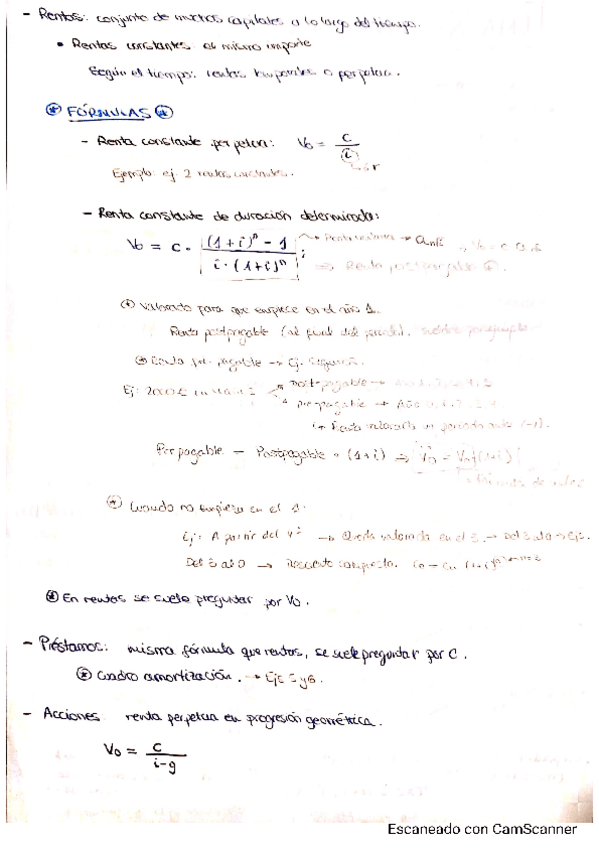 - Rentas: conjunto de muchos capitales a lo largo del tiempo.
• Rentas constantes el mismo importe
Según el tiempo: rentas temporales o perpetua.
* FÓRMULAS *
- Renta constante perpetua: V₀ = C / i
Ejemplo: ej. 2 rentas constantes.
- Renta constante de duración determinada:
V₀ = C · ((1+i)ⁿ - 1) / (i · (1+i)ⁿ) ;
⇒ Renta postpagable
* Valorado para que empiece en el año 1.
Renta postpagable (al final del periodo).
* Renta pre-pagable → Ej. seguros.
Ej: 2000€
postpagable →
prepagable → Año
Renta valorada un periodo antes (-1).
Prepagable - Postpagable · (1+i) ⇒ V₀ = V₀ (1+i)
* Cuando no empieza en el 1.
Ej: A partir del 4º → Queda valorada en el 3. → Del 3 al 0
Del 3 al 0 → Descuento compuesto.
* En rentas se suele preguntar por V₀.
- Préstamos: misma fórmula que rentas, se suele preguntar por C.
* Cuadro amortización. → Ejs 5 y 6.
- Acciones: renta perpetua en progresión geométrica.
V₀ = C / i-g
Escaneado con CamScanner